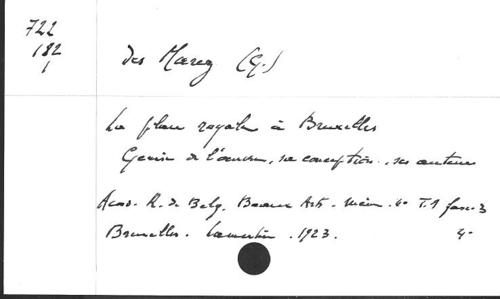 722
182
1
des Marez (G.)
La place royale à Bruxelles
Genèse de l'oeuvre, sa conception, ses auteurs
Acad. R. de Belg. Beaux Arts. Mém. 4° T.1 fasc. 3
Bruxelles. Lamertin. 1923. 4°